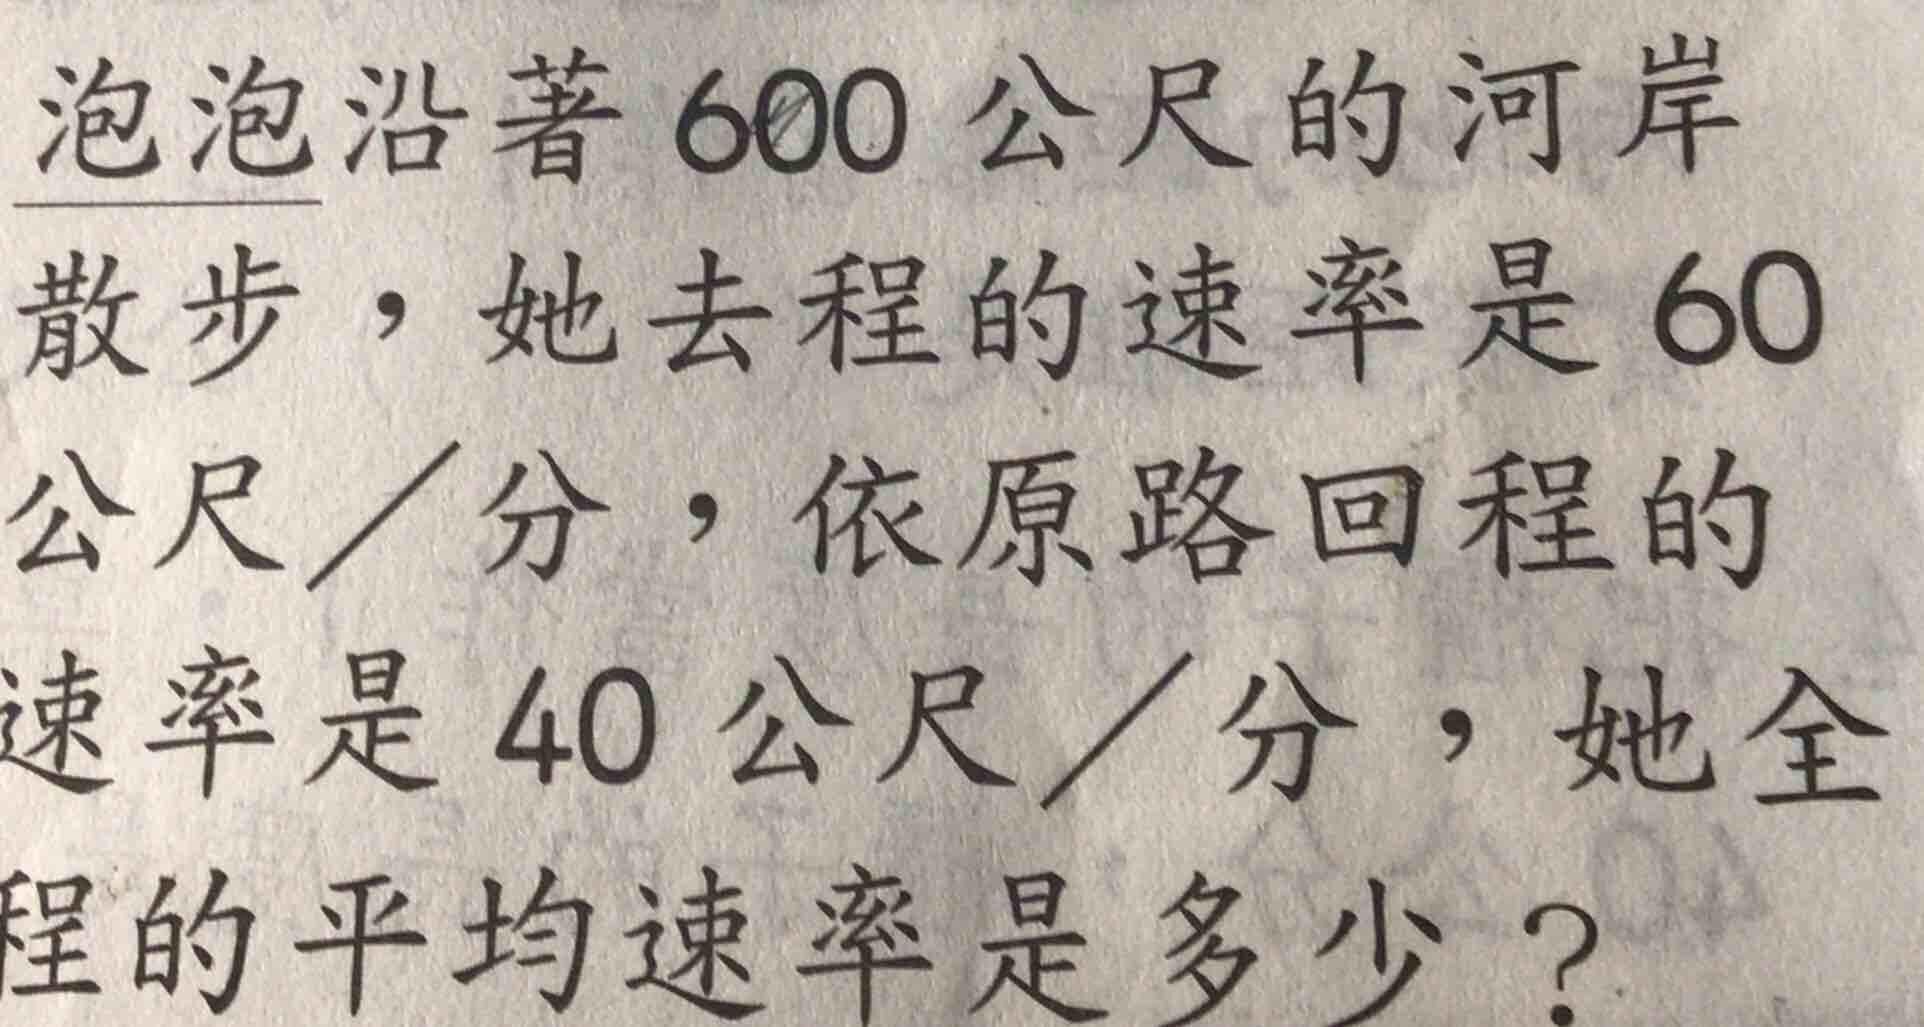 泡泡沿著600公尺的河岸
散步，她去程的速率是60
公尺／分，依原路回程的
速率是40公尺／分，她全
程的平均速率是多少？